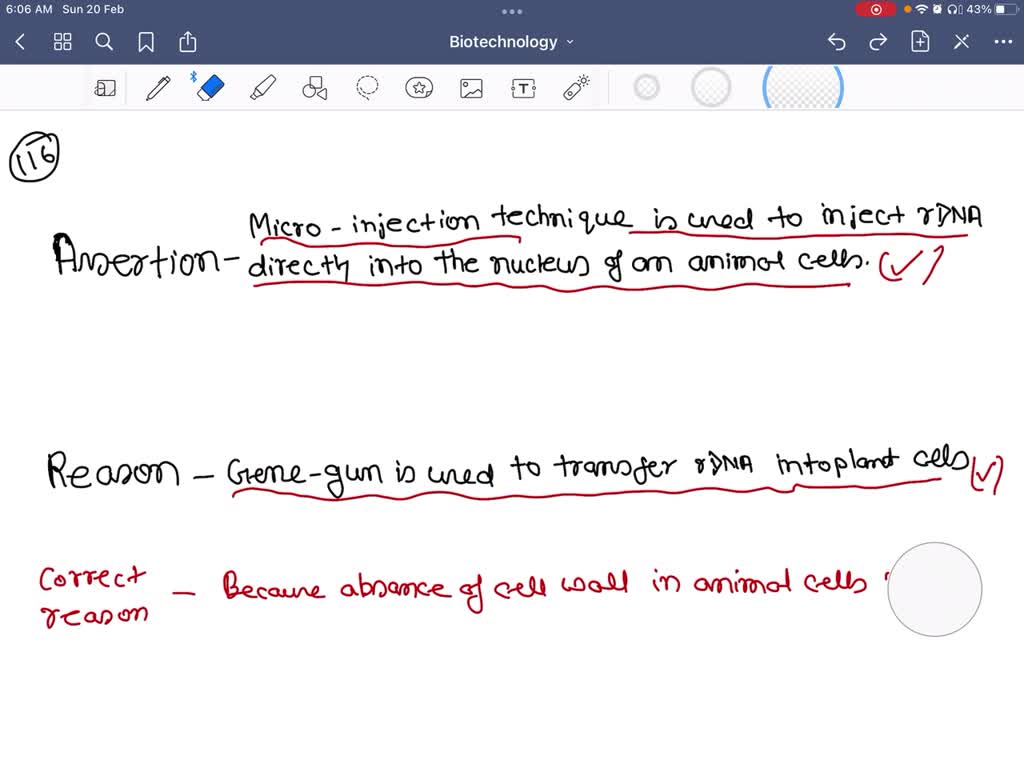 6:06 AM Sun 20 Feb
43%
Biotechnology
T
116
Micro - injection technique is used to inject rDNA
Assertion - directly into the nucleus of an animal cells. (✓)
Reason - Gene-gun is used to transfer rDNA into plant cells (✓)
Correct reason - Because absence of cell wall in animal cells